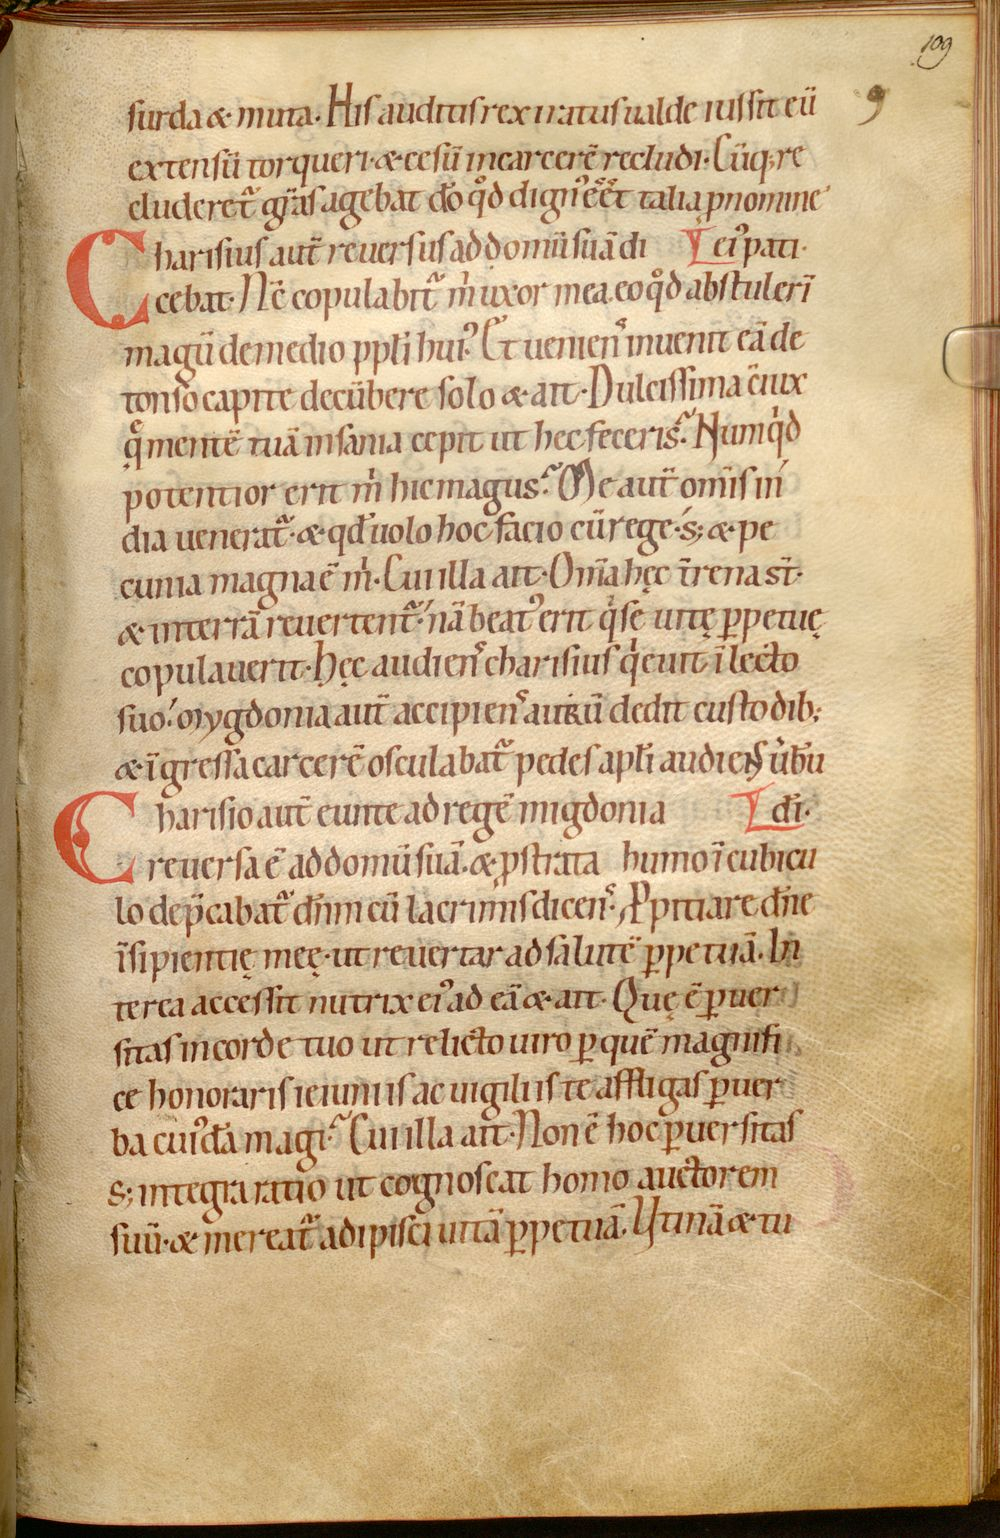 109
surda & muta. His auditis rex iratus ualde iussit eū
extensū torqueri. & cesū in carcerē recludi. Cūq; re
cluderet᷑ gr̄as agebat d̄o qđ dign᷒ eēt talia p nomine
Charisius aut̄ reuersus ad domū suā di ei᷒ pati.
cebat. Nē copulabit᷑ m̄ uxor mea. eo qđ abstulerī
magū de medio ppl̄i hui᷒. Et uenien᷒ inuenit eā de
tonso capite decūbere solo & ait. Dulcissima c̄iux
q̊ mentē tuā insania cepit ut hec feceris. Numq̇d
potentior erit m̄ hic magus. Me aut̄ om̄is in
dia uenerat᷑. & qđ uolo hoc facio cū rege. s; & pe
cunia magna ē m̄. Cui illa ait. Om̄ia hęc t̄rena st̄.
& in terrā reuertent᷑. nā beat᷒ erit q̇ se uitę ꝑpetuę
copulauerit. Hęc audien᷒ charisius q̇euit ī lecto
suo. mygdonia aut̄ accipien᷒ aurū dedit custodib;
& īgressa carcerē osculabat᷑ pedes apl̄i audiens ūbū
Charisio aut̄ eunte ad regē migdonia d̄i.
reuersa ē ad domū suā. & ꝓstrata humo ī cubicu
lo dep̄cabat᷑ dn̄m cū lacrimis dicen᷒. Ꝓpitiare dn̄e
īsipientię meę. ut reuertar ad salutē ꝑpetuā. In
terea accessit nutrix ei᷒ ad eā & ait. Quę ē ꝑuer
sitas in corde tuo ut relicto uiro ꝑ quē magnifi
ce honoraris ieiuniis ac uigiliis te affligas ꝑ uer
ba cui᷒dā magi. Cui illa ait. Non ē hoc ꝑuersitas
s; integra ratio ut cognoscat homo auctorem
suū. & mereat᷑ adipisci uitā ꝑpetuā. Utinā & tu